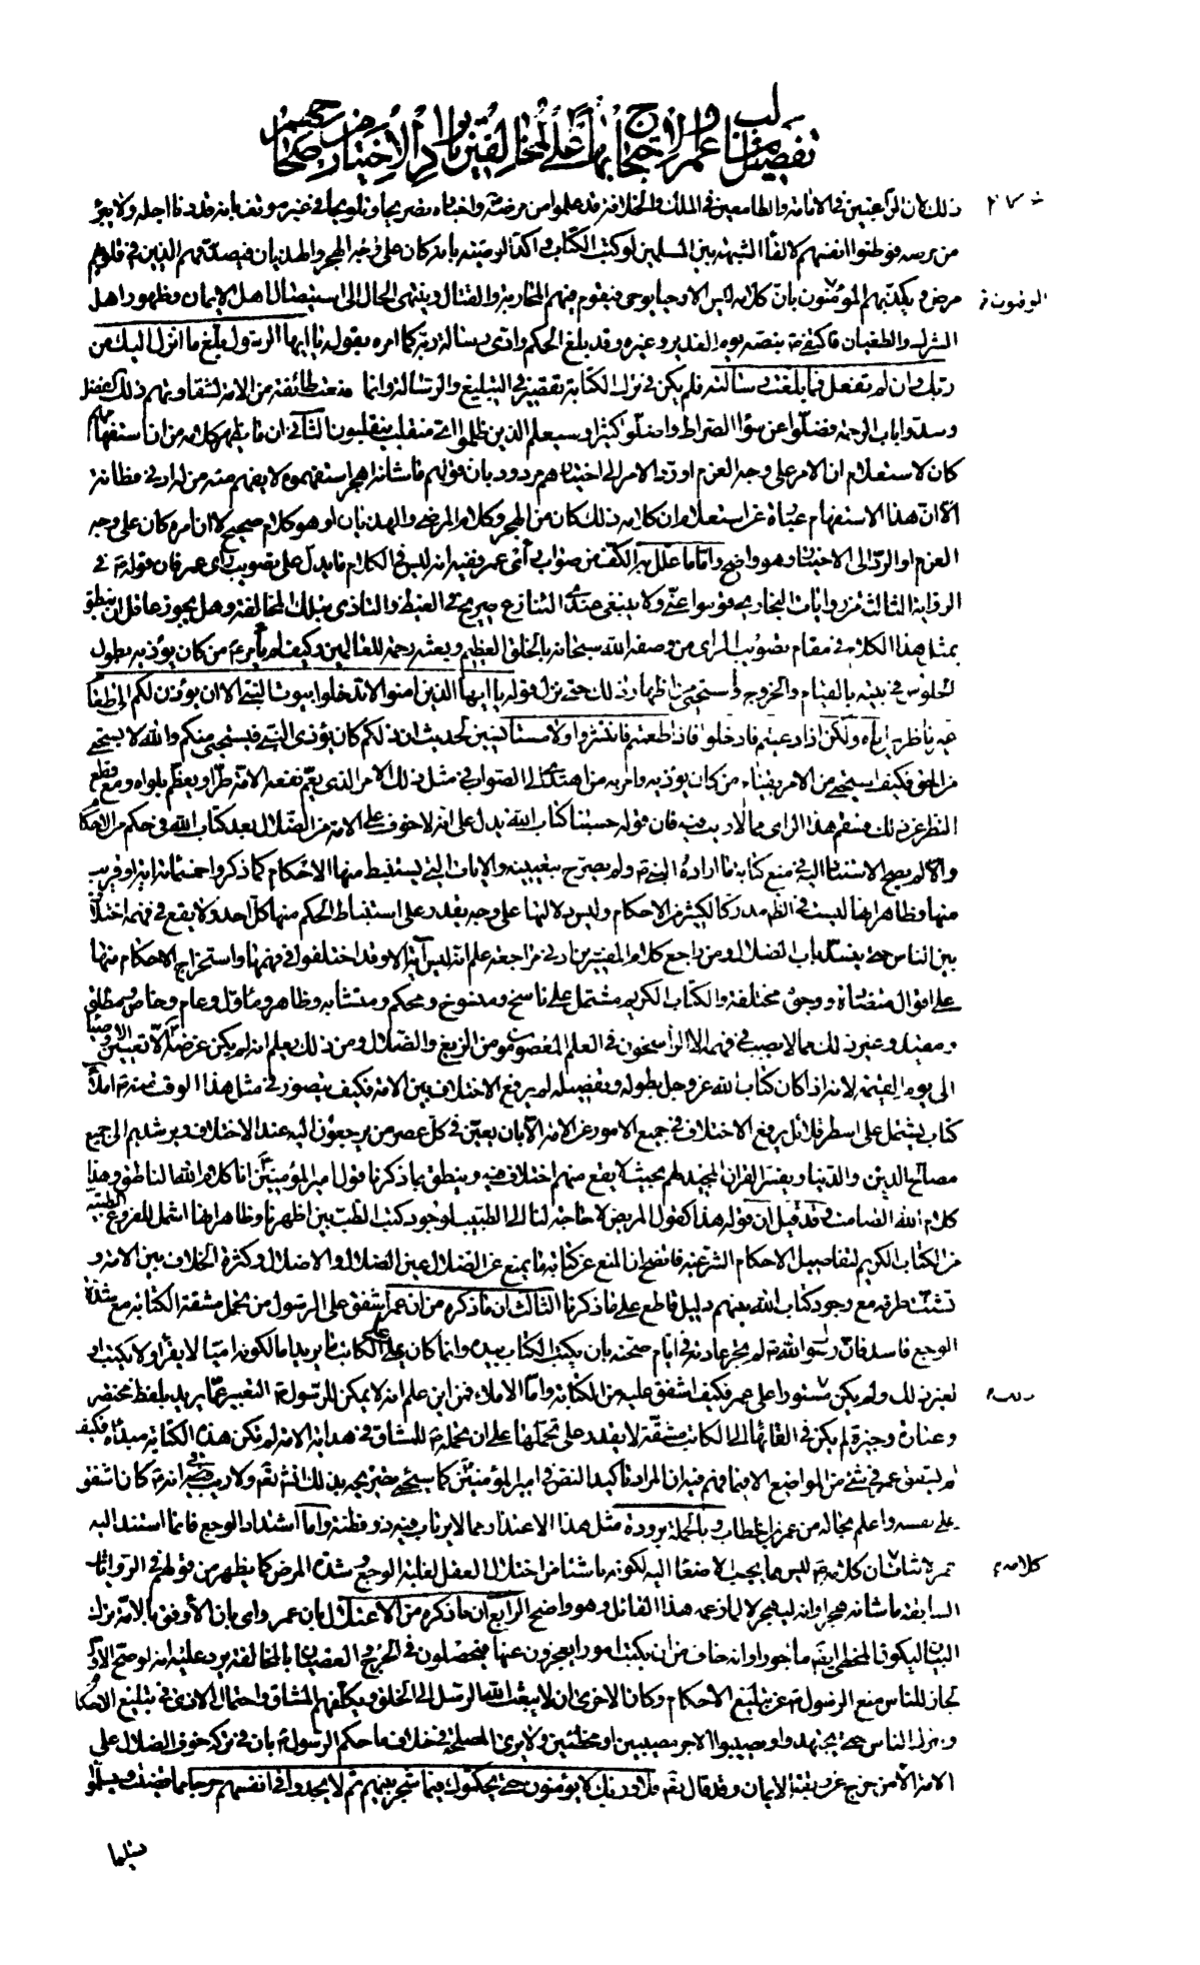 تفصيل مثالب عمر والاحتجاج بها على المخالفين بايراد الاخبار من صحاحهم
٢٧٠
ذلك كان الراغبين في الامارة والطامعين في الملك والخلافة قد علموا من مرضه واخباره تصريحا وتلويحا في غير موقف بانه قد دنا اجله ولا يبرؤ
من مرضه فوطنوا انفسهم لالقاء الشبهة بين المسلمين لو كتب الكتاب واكد الوصية بانه كان على وجه الهجر والهذيان فيصدقهم الذين في قلوبهم
مرض ويكذبهم المؤمنون بان كلامه ليس الا وحيا يوحى فيقوم فيهم المحاربة والقتال وينتهى الحال الى استيصال اهل الايمان وظهور اهل
الشرك والطغيان فاكتفى ص بنصه يوم الغدير وغيره وقد بلغ الحكم وادى رسالة ربه كما امره بقوله يا ايها الرسول بلغ ما انزل اليك من
ربك وان لم تفعل فما بلغت رسالته فلم يكن في ترك الكتابة تقصير في التبليغ والرسالة وانما منعت طائفة من الامة لشقاوتهم ذلك الفضل
وسدوا باب الرحمة فضلوا عن سواء الصراط واضلوا كثيرا وسيعلم الذين ظلموا اى منقلب ينقلبون الثاني ان ما يظهر كلامه من ان استفهامهم
كان لاستعلام ان الامر على وجه العزم او رد الامر الى اختيارهم مردود بان قولهم ما شانه اهجر استفهموه لا يفهم منه من له ادنى فطانة
الا ان هذا الاستفهام عبارة عن استعلام ان كلامه ذلك كان من الهجر وكلام المرضى والهذيان او هو كلام صحيح لا ان امره كان على وجه
العزم او الرد الى الاختيار وهو واضح واما ما علل به الكف من صواب رأى عمر ففيه انه ليس في الكلام ما يدل على تصويب رأى عمر فان قوله ص في
الرواية الثالثة من روايات البخارى قوموا عنى ولا ينبغى عندى التنازع صريح في الغيظ والتاذى بتلك المخالفة وهل يجوز عاقل ان ينطق
بمثل هذا الكلام في مقام تصويب الراى من وصفه الله سبحانه بالخلق العظيم وبعثه رحمة للعالمين وكيف لم يأمر ص من كان يؤذيه بطول
الجلوس في بيته بالقيام والخروج ويستحيى من اظهار ذلك حتى نزل قوله يا ايها الذين امنوا لا تدخلوا بيوت النبى الا ان يؤذن لكم الى طعام
غير ناظرين اناه ولكن اذا دعيتم فادخلوا فاذا طعمتم فانتشروا ولا مستانسين لحديث ان ذلكم كان يؤذى النبى فيستحيى منكم والله لا يستحيى
من الحق فكيف يستحيى من الامر بقيام من كان يؤذيه وامر به من اهتدى الى الصواب في مثل ذلك الامر الذى يعم نفعه الامة طرا ويعظم بلواه ومع قطع
النظر عن ذلك فسقم هذا الراى مما لا ريب فيه فان قوله حسبنا كتاب الله يدل على انه لا خوف على الامة من الضلال بعد كتاب الله في حكم من الاحكام
والا لم يصح الاستناد اليه في منع كتابة ما اراده النبى ص ولم يصرح بتعيينه والايات التى يستنبط منها الاحكام كما ذكروا خمسمائة اية او قريب
منها وظاهر انها ليست في الظهور مدركا لكثير من الاحكام وليس دلالتها على وجه يقدر على استنباط الحكم منها كل احد ولا يقع في فهمه اختلاف
بين الناس حتى ينسد باب الضلال ومن راجع كلام المفسرين ادنى مراجعة علم انه ليس اية الا وقد اختلفوا في فهمها واستخراج الاحكام منها
على اقوال متضادة ووجوه مختلفة والكتاب الكريم مشتمل على ناسخ ومنسوخ ومحكم ومتشابه وظاهر ومأول وعام وخاص ومطلق
ومقيد وغير ذلك مما لا يصيب في فهمه الا الراسخون في العلم المعصومون من الزيغ والضلال ومن ذلك يعلم انه لم يكن غرضه الا تعيين الاوصياء
الى يوم القيمة لانه اذا كان كتاب الله عز وجل بطوله وتفصيله لم يرفع الاختلاف بين الامة فكيف يتصور في مثل هذا الوقت منه ص املاء
كتاب يشتمل على اسطر قلائل يرفع الاختلاف في جميع الامور عن الامة الا بان يعين في كل عصر من يرجعون اليه عند الاختلاف ويرشدهم الى جميع
مصالح الدين والدنيا ويفسر القران المجيد لهم بحيث لا يقع منهم اختلاف فيه وينطق بما ذكرنا قول امير المؤمنين ع انا كلام الله الناطق وهذا
كلام الله الصامت وقد قيل ان قوله هذا كقول المريض لا حاجة لنا الى الطبيب لوجود كتب الطب بين اظهرنا وظاهر انها اشمل للفروع الطبية
من الكتاب الكريم لتفاصيل الاحكام الشرعية فاتضح ان المنع عن كتابة ما يمنع عن الضلال عين الضلال والاضلال وكثرة الخلاف بين الامة و
تشتت طرقه مع وجود كتاب الله بينهم دليل قاطع على ما ذكرنا الثالث ان ما ذكره من ان عمر اشفق على الرسول من تحمل مشقة الكتابة مع شدة
الوجع فاسد فان رسول الله ص لم يجر عادته في ايام صحته بان يكتب الكتاب بيده وانما كان يملى على الكاتب ما يريد اما لكونه اميا لا يقرأ ولا يكتب او
لغير ذلك ولم يكن مستورا على عمر فكيف اشفق عليه من الكتابة واما الاملاء فمن اين علم انه لا يمكن للرسول ص التعبير عما يريد بلفظ مختصر
وعبارة وجيزة لم يكن في القائها الى الكاتب مشقة لا يقدر على تحملها على ان تحمله ص للمشاق في هداية الامة لم تكن هذه الكتابة مبدأه فكيف
لم يشفق عمر في شئ من المواضع الا فيما فهم فيه ان المراد تاكيد النص في امير المؤمنين ع كما سيجئ تصريحه بذلك انشاء الله تعالى ولا ريب في انه ص كان اشفق
على نفسه واعلم بحاله من عمر بن الخطاب وبالجملة برودة مثل هذا الاعتذار مما لا يرتاب فيه ذو فطنة واما اشتداد الوجع فانما استند اليه
عمر لاثبات ان كلامه ص ليس مما يجب الاصغاء اليه لكونه ناشئا من اختلال العقل لغلبة الوجع وشدة المرض كما يظهر من قولهم في الروايات
السابقة ما شانه هجر او انه ليهجر لا لما زعمه هذا القائل وهو واضح الرابع ان ما ذكره من الاعتلال بان عمر راى ان الاوفق بالامة ترك
البيان ليكون المخطئ ايضا ماجورا وانه خاف من ان يكتب امورا يعجزون عنها فيحصلون في الحرج والعصيان بالمخالفة يرد عليه انه لو صح الاول
لجاز للناس منع الرسول ص عن تبليغ الاحكام وكان الاحرى ان لا يبعث الله الرسل الى الخلق ويكلفهم المشاق واحتمال الاذى في تبليغ الاحكام
ويترك الناس حتى يجتهدوا ويصيبوا الاجر مصيبين او مخطئين ولا يرى المصلحة في خلاف ما حكم الرسول ص بان في تركه خوف الضلال على
الامة الا من خرج عن ربقة الايمان وقد قال تعالى فلا وربك لا يؤمنون حتى يحكموك فيما شجر بينهم ثم لا يجدوا في انفسهم حرجا مما قضيت ويسلموا
تسليما